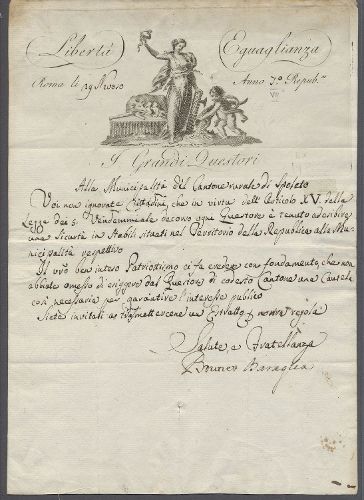 Libertà Eguaglianza
Roma li 29 Nevoso Anno 7.º Repub.no
VII
I Grandi Questori
Alla Municipalità del Cantone rurale di Spoleto
Voi non ignorate Cittadini, che in virtù dell'Articolo XV. della
Legge dei 5. Vendemmiale decorso ogni Questore è tenuto a dare
una Sicurtà in Stabili situati nel Territorio della Republica alla Mu-
nicipalità respettiva
Il vr̃o ben inteso Patriotismo ci fa credere con fondamento, che non
abbiate omesso di esiggere dal Questore di codesto Cantone una Cautela
così necessaria per garantire l'interesse publico
Siete invitati a trasmettercene un Estratto p. nostra regola
Salute, e Fratellanza
Baraglia